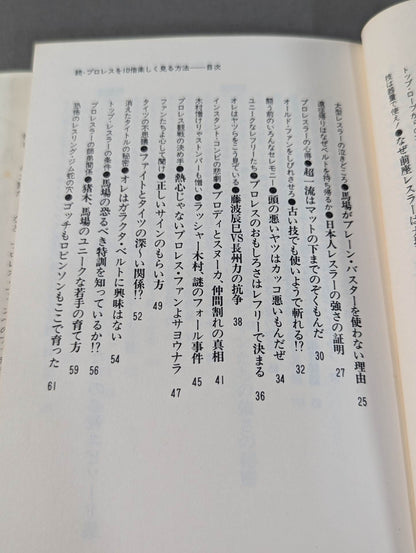 続・プロレスを10倍楽しく見る方法——目次
大型レスラーの泣きどころ●馬場がブレーン・バスターを使わない理由 25
遠征帰りはなぜベルトを持ち帰るか●日本人レスラーの強さの証明 27
プロレスラーの心得●超一流はマットの下までのぞくもんだ 30
オールド・ファンをしびれさせろ●古い技でも使いようで斬れる!? 32
闘う前のいろんなセレモニー●頭の悪いヤツはカッコ悪いもんだぜ 34
ユニークなレフリーたち●プロレスのおもしろさはレフリーで決まる 36
オレはヤツらをこう見ている●藤波辰巳VS長州力の抗争 38
インスタント・コンビの悲劇●ブロディとスヌーカ、仲間割れの真相 41
木村憎けりゃストンパーも憎い●ラッシャー木村、謎のフォール事件 45
プロレス観戦の決め手●熱心じゃないプロレス・ファンよサヨウナラ 47
闘い●正しいサインのもらい方 49
タイツの不思議●ファイトとタイツの深〜い関係!? 52
消えたタイトルの秘密●オレはガラクタ・ベルトに興味はない 54
トップレスラーの条件●馬場の恐るべき特訓を知っているか!? 56
プロレスラーの師弟関係●猪木、馬場のユニークな若手の育て方 59
恐怖のレスリング・ジム蛇の穴●ゴッチもロビンソンもここで育った 61